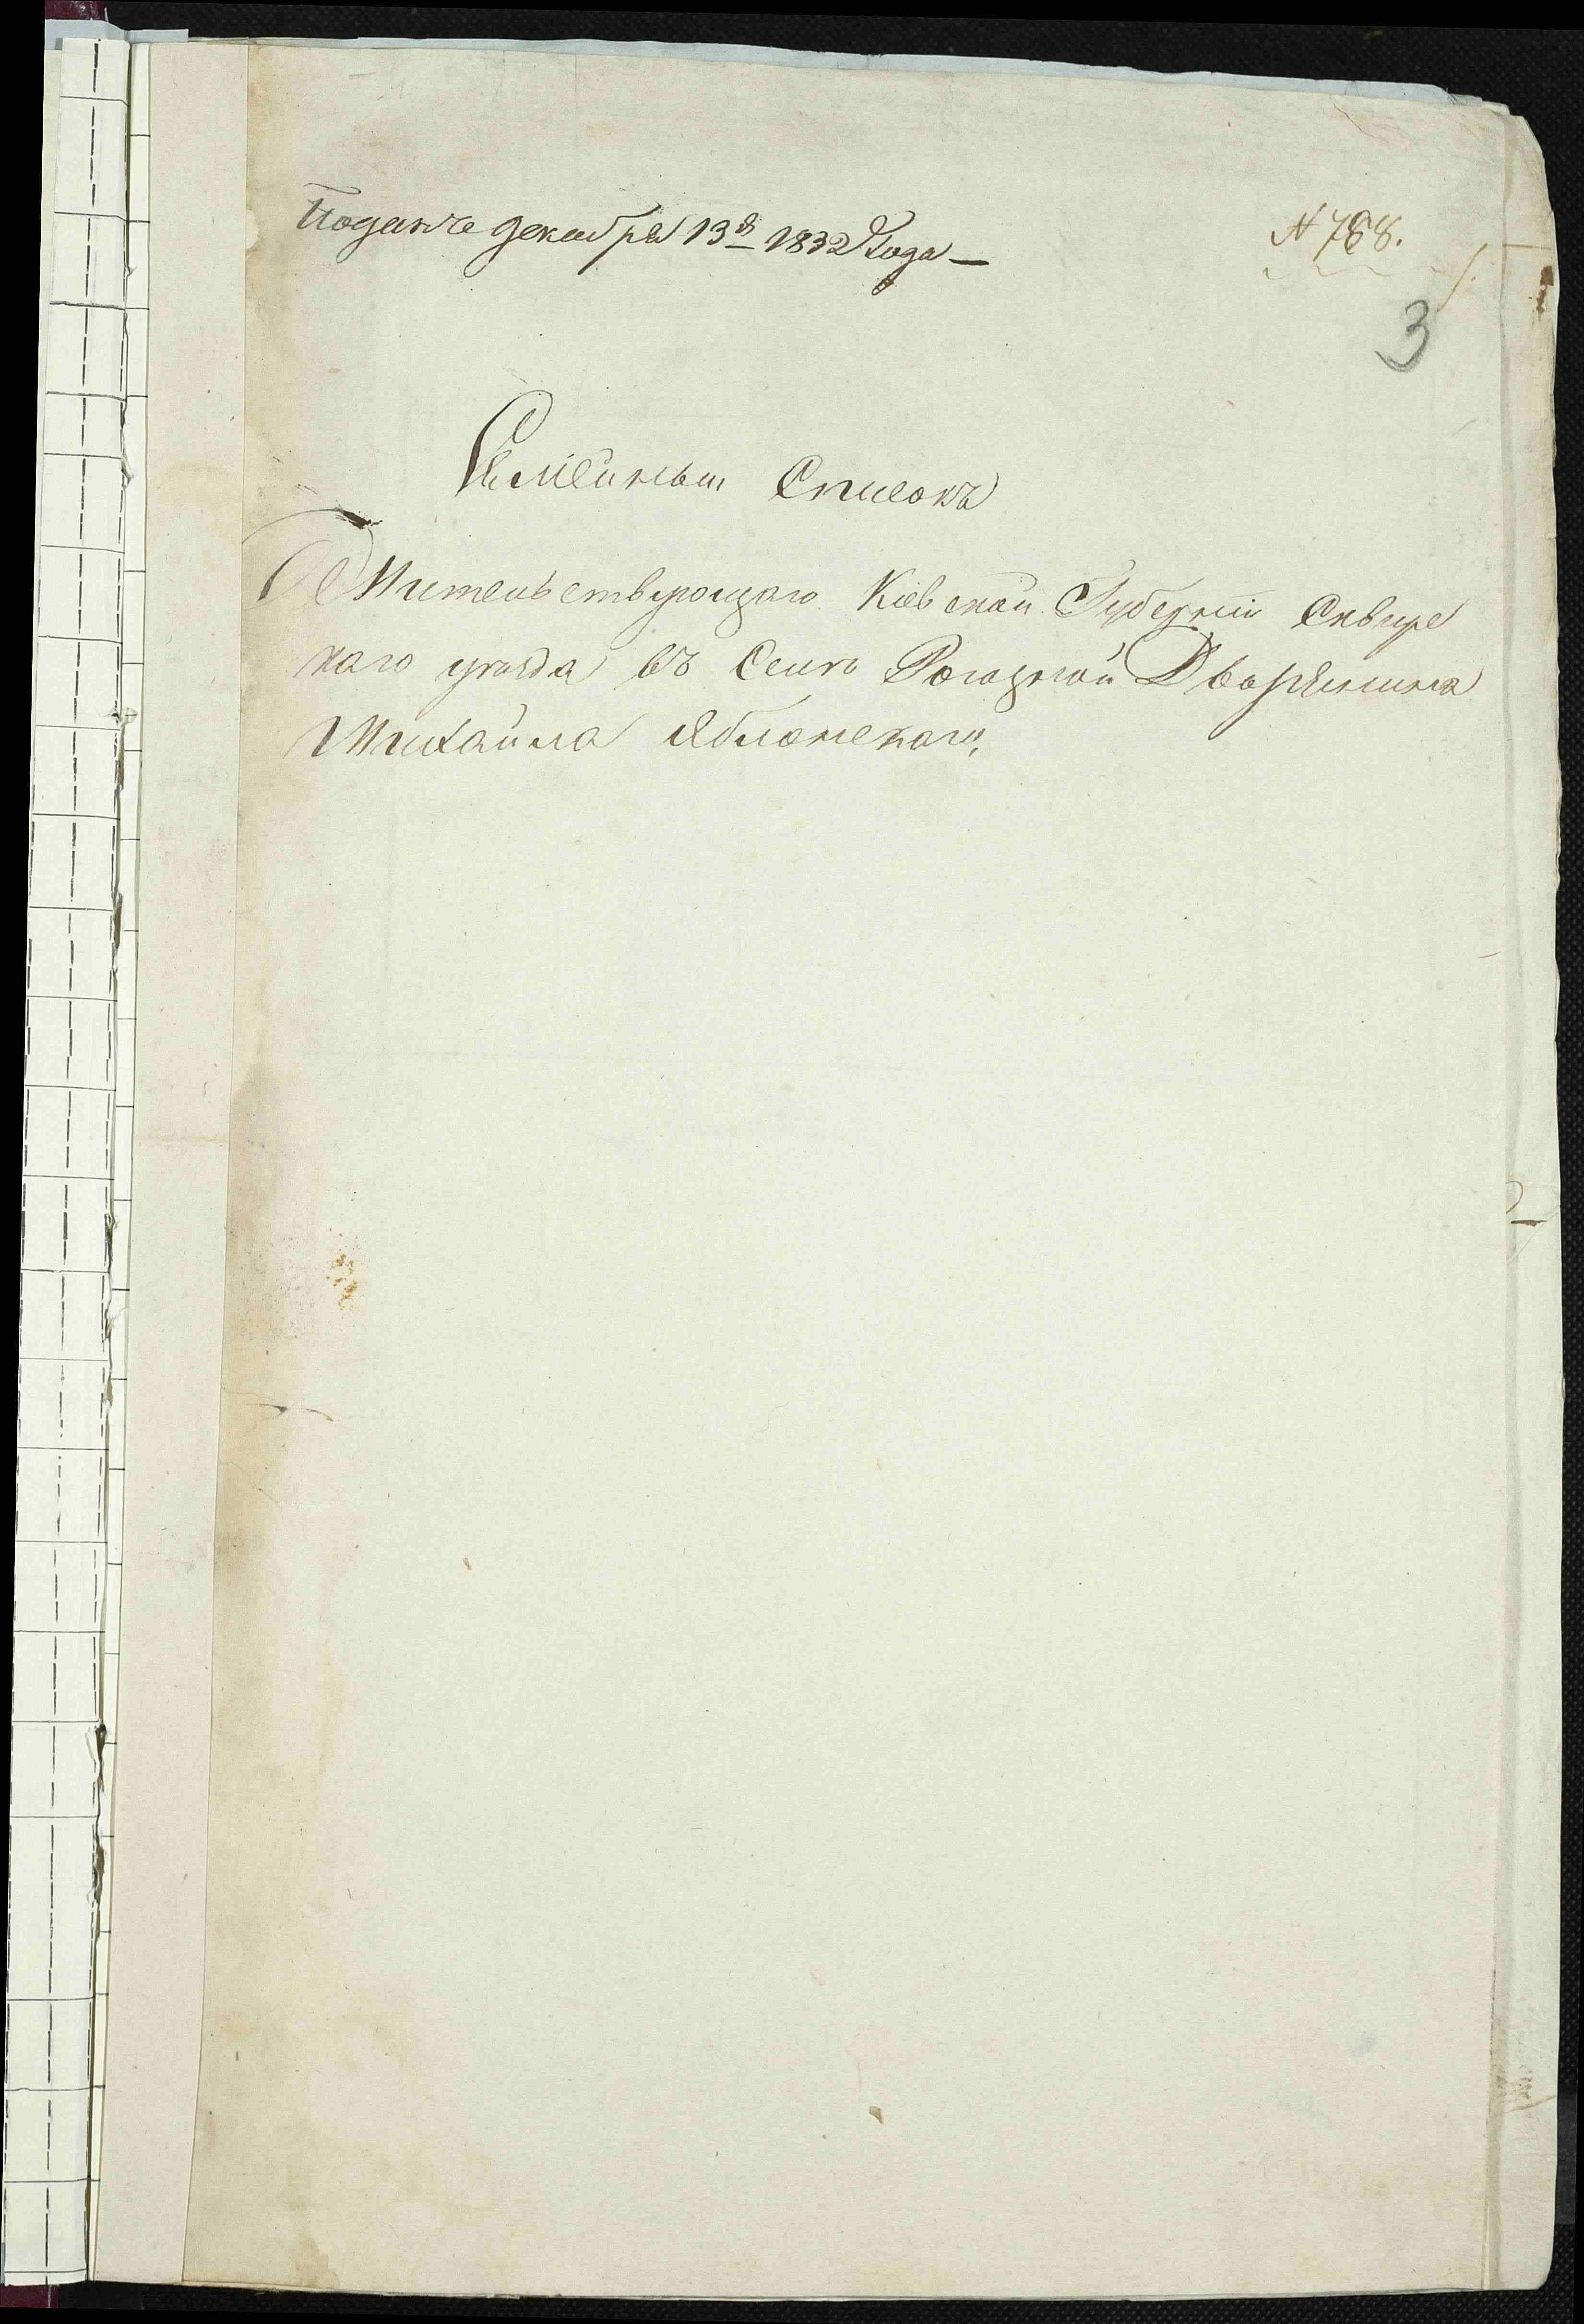 Поданъ декабря 13 д 1832 Года —
№ 768.
3
Семейный Списокъ
Жительствующаго Кіевской Губерніи Сквирс
каго уѣзда въ Селѣ Рогозной Дворянина
Михайла Яблонскаго,